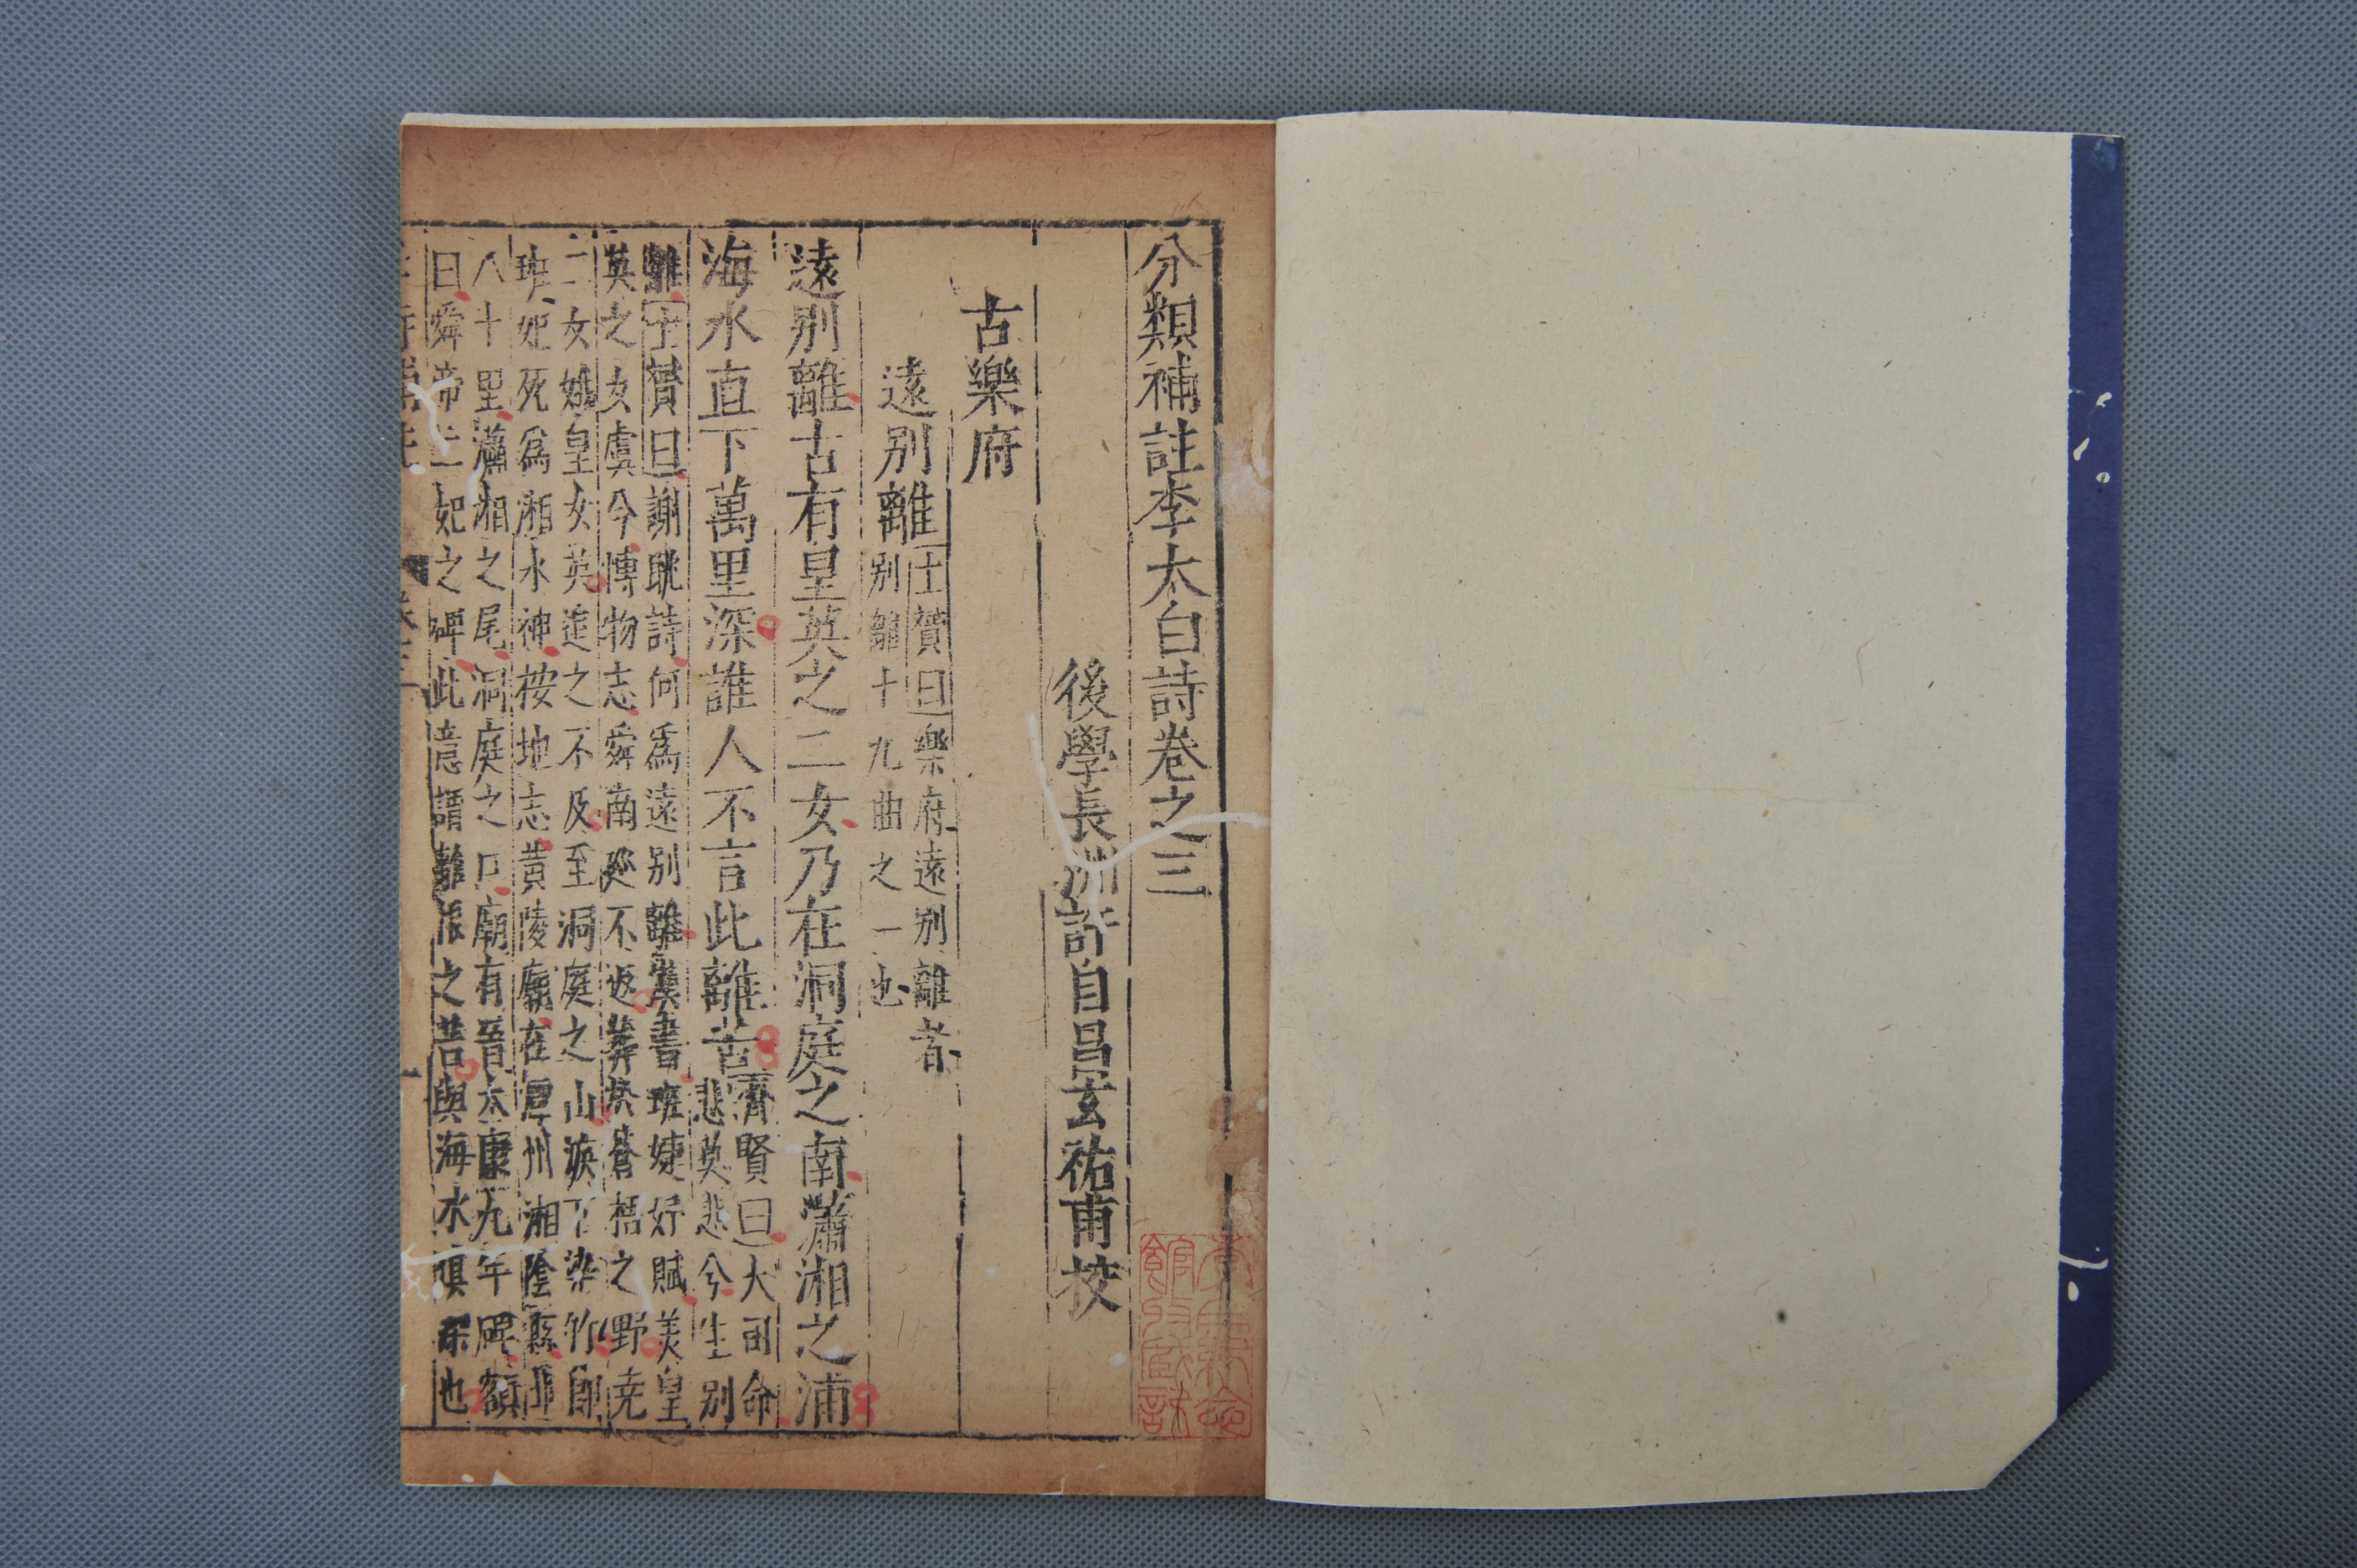 分類補註李太白詩卷之三
後學長洲許自昌玄祐甫校
古樂府
遠別離
士贇曰樂府遠别離者
别離十九曲之一也
遠别離古有皇英之二女乃在洞庭之南瀟湘之浦
海水直下萬里深誰人不言此離苦
齊賢曰大司命
悲莫悲兮生别
離士贇曰謝眺詩何爲遠别離漢書班婕妤賦美皇
英之女虞今慱物志舜南廵不返葬於蒼梧之野堯
二女娥皇女英追之不及至洞庭之山淚下染竹卽
班妃死爲湘水神按地志黄陵廟在潭州湘陰縣北
八十里瀟湘之尾洞庭之口廟有晉太康九年碑額
曰舜帝二妃之碑此意謂離恨之苦與海水俱深也